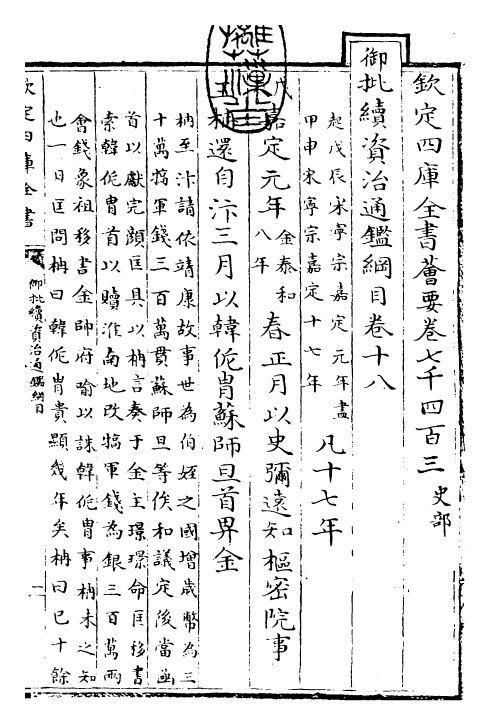 欽定四庫全書薈要卷七千四百三 史部
御批續資治通鑑綱目卷十八
起戊辰宋寧宗嘉定元年盡
甲申宋寧宗嘉定十七年
凡十七年
戊 嘉定元年 金泰和八年 春正月以史彌遠知樞密院事
王柟還自汴三月以韓侂胄蘇師旦首畀金
柟至汴請依靖康故事世為伯姪之國增歲幣為三
十萬犒軍錢三百萬貫蘇師旦等俟和議定後當函
首以獻完顔匡具以柟言奏于金主璟璟命匡移書
索韓侂胄首以贖淮南地改犒軍錢為銀三百萬兩
會錢象祖移書金帥府喻以誅韓侂胄事柟未之知
也一日匡問柟曰韓侂胄貴顯幾年矣柟曰已十餘
欽定四庫全書
御批續資治通鑑綱目
一